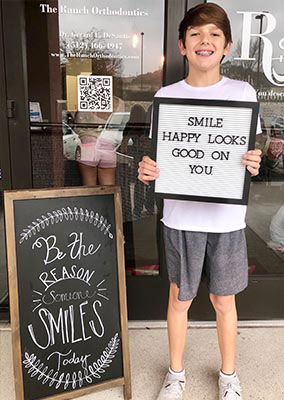 The Ranch Orthodontics
(512) 466-4947
www.TheRanchOrthodontics.com
SMILE
HAPPY LOOKS
GOOD ON
YOU
Be the
REASON
Someone
SMILES
Today